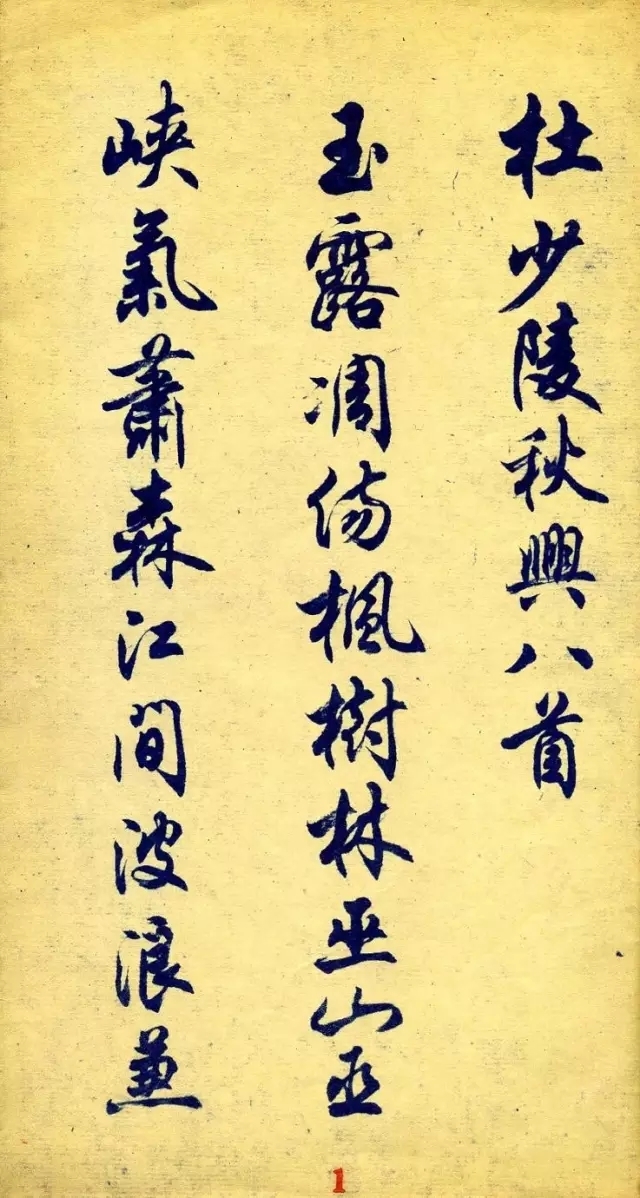 杜少陵秋興八首
玉露凋傷楓樹林巫山巫
峽氣蕭森江間波浪兼
1